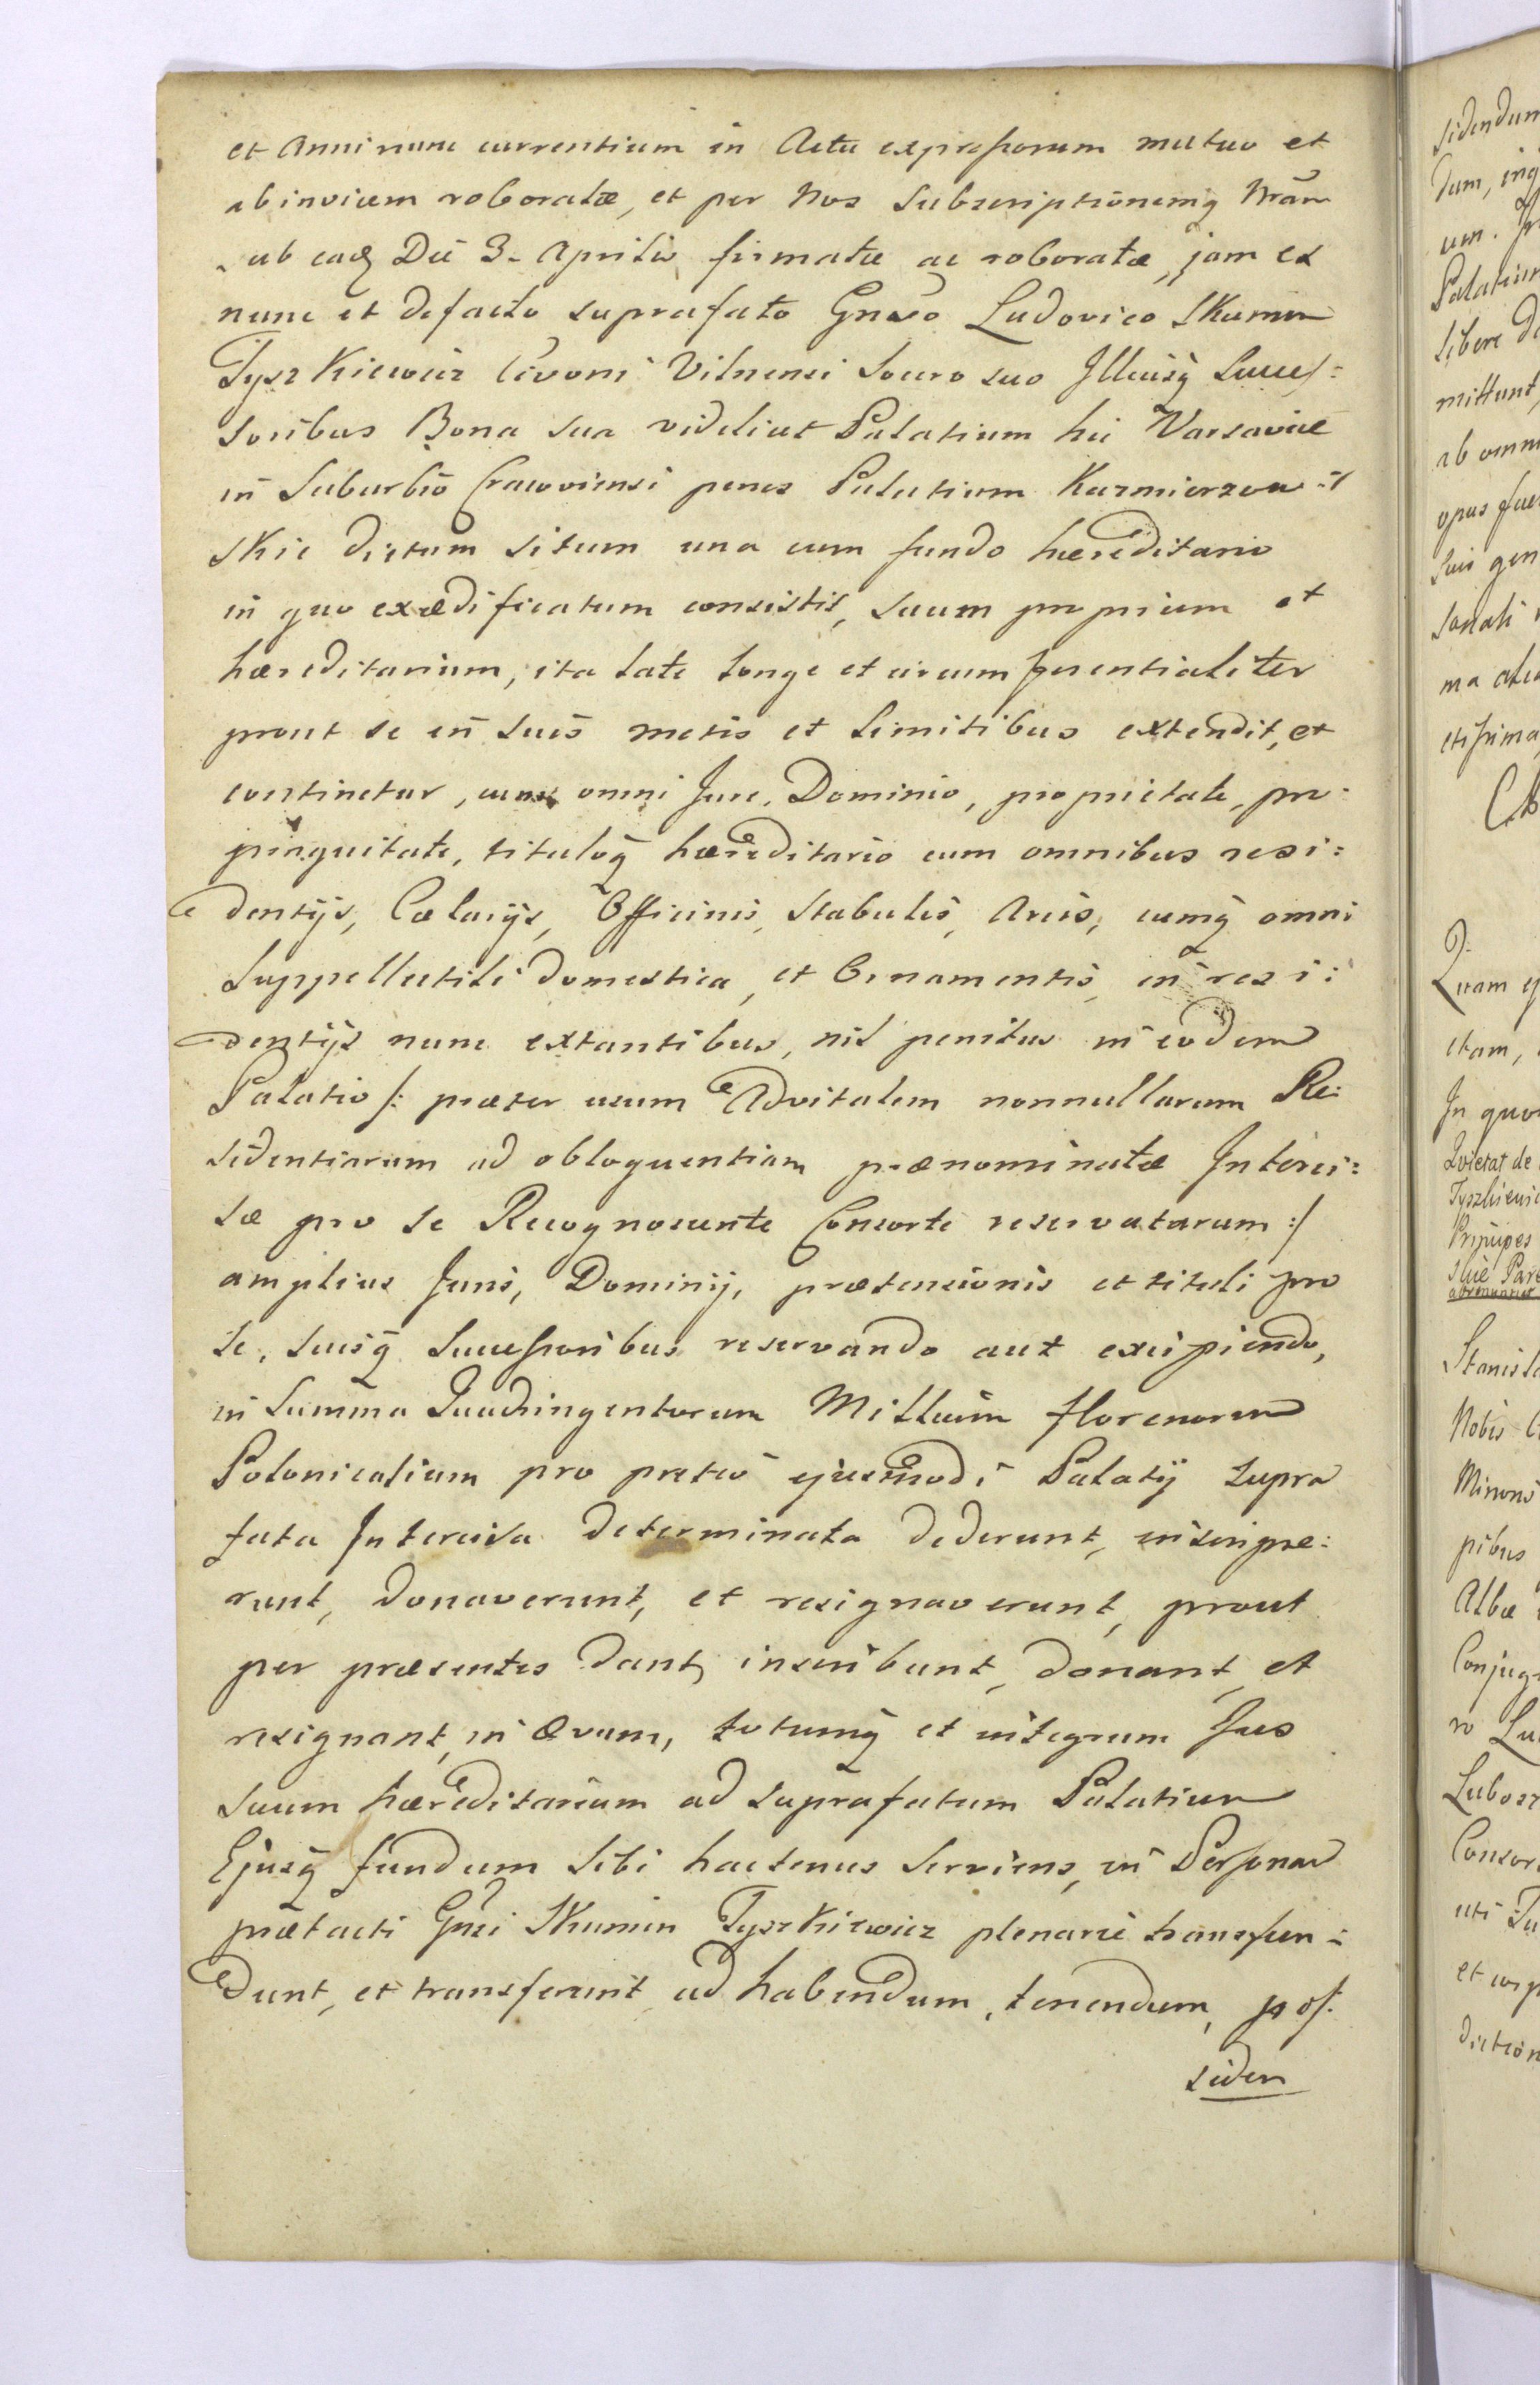 et Anni nunc currentium in Actu expressorum mutuo et
abinvicem roboratæ, et per Nos Subscriptionemq̃ Nram̃
sub eadẽ Die 3. Aprilis firmatæ ac roboratæ, jam ex
nunc et defacto suprafato Gnrõso Ludovico Skumin
Tyszkiewicz Civoni Vilnensi Socro suo Illiusq̃ Succes:
soribus Bona sua videlicet Palatium hic Varsaviæ
in Suburbio Cracoviensi penes Palatium Kazmierzow:
skie dictum situm una cum fundo hæreditario
in quo exædificatum consistit, suum proprium et
hæreditarium, ita late longe et circumferentialiter
prout se in suis metis et Limitibus extendit, et
continetur, cum omni Jure, Dominio, proprietate, pro:
pinquitate, tituloq̃ hæreditario cum omnibus resi:
dentijs, Cælarijs, Officinis, Stabulis, Areis, cumq̃ omni
Suppellectili domestica, et Ornamentis, in resi:
dentijs nunc extantibus, nil penitus in eodem
Palatio /: præter usum Advitalem nonnullarum Re:
sidentiarum ad obloquentiam prænominatæ Interci:
sæ pro se Recognoscente Consorte reservatarum :/
amplius Juris, Dominij, prætensionis et tituli pro
se, suisq̃ Successoribus reservando aut excipiendo,
in Summa Quadringentorum Millium florenorum
Polonicalium pro pretio ejusmodi Palatij supra
fata Intercisa determinata dederunt, inscripse:
runt, donaverunt, et resignaverunt, prout
per præsentes dant, inscribunt, donant, et
resignant, in Ævum, totumq̃ et integrum Jus
suum hæreditarium ad suprafatum Palatium
Ejusq̃ fundum sibi hactenus serviens, in Personam
prætacti Gnrĩ Skumin Tyszkiewicz plenarie transfun:
dunt, et transferunt, ad habendum, tenendum, pos:
siden
sidendum
dum,
um.
Palatium
libere
mittunt,
ab omni
opus
suis
ma
Quam
etam,
In quor
Quietat de
Tyszkiewic
Principes
Stanisl
Nobis
Minoris
pibus
Albæ
Conjug
ro
Lubosz
Consor
uti
diction